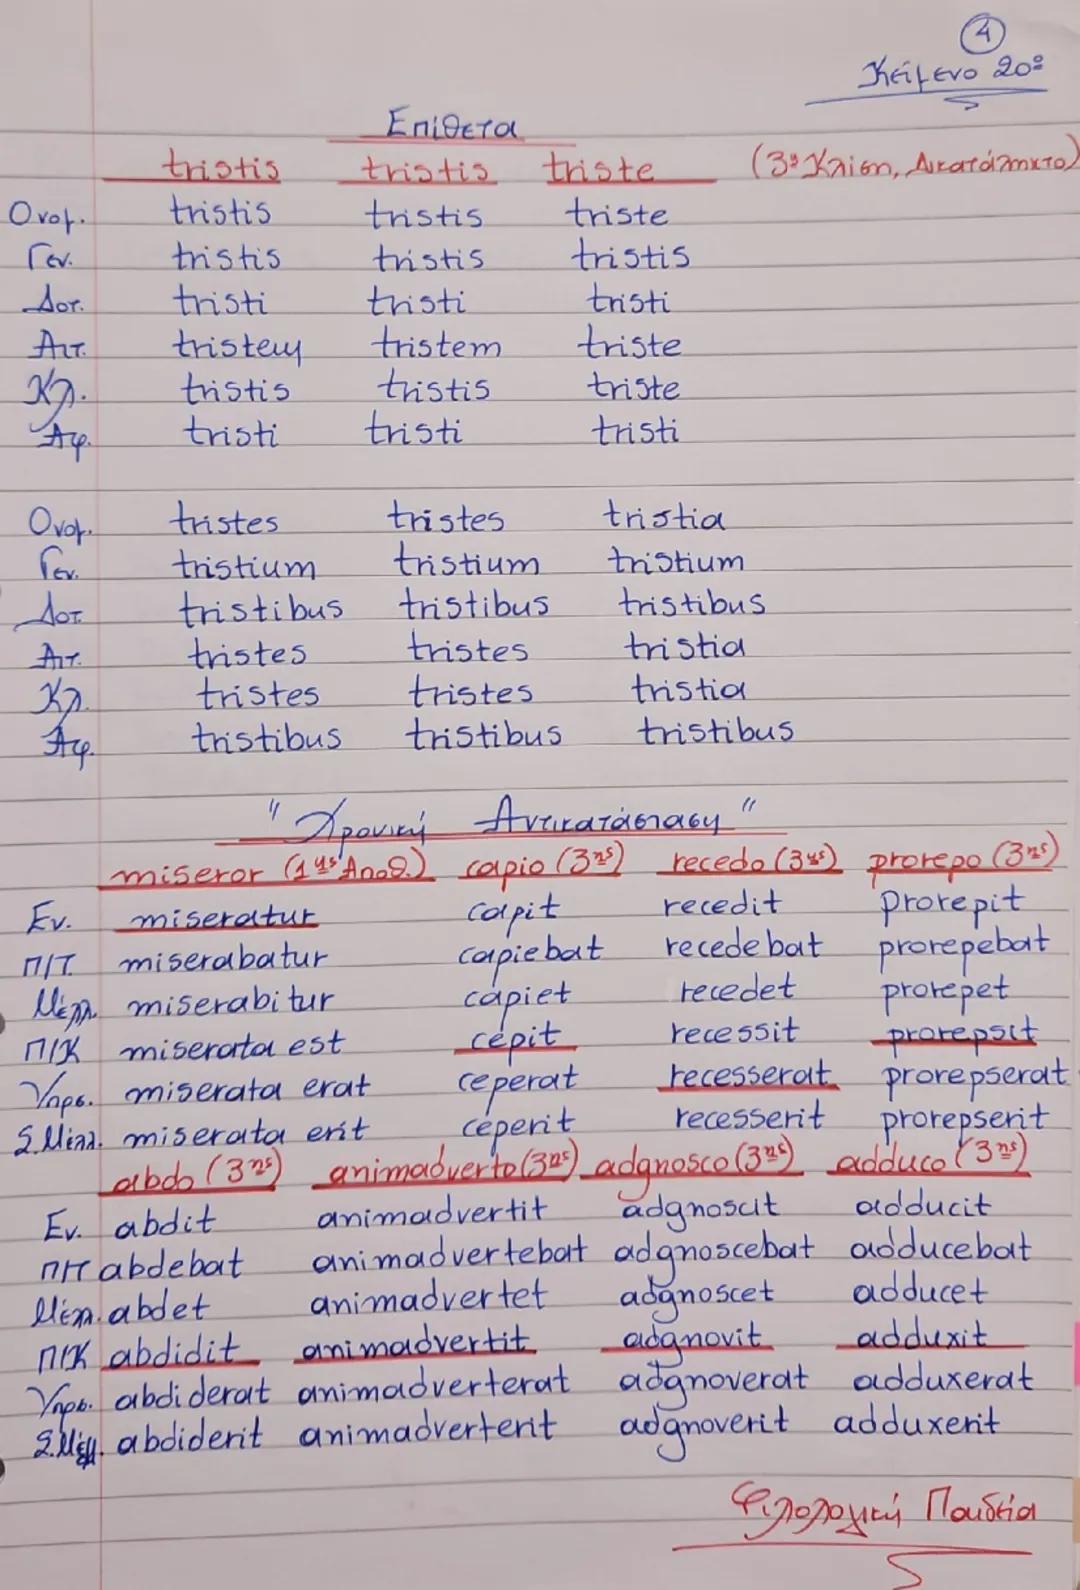 4
Κείμενο 20º
Επίθετα
tristis tristis triste (3ª Κλίση, Δικατάληκτο)
Ονομ. tristis tristis triste
Γεν. tristis tristis tristis
Δοτ. tristi tristi tristi
Αιτ. tristem tristem triste
Κλ. tristis tristis triste
Αφ. tristi tristi tristi
Ονομ. tristes tristes tristia
Γεν. tristium tristium tristium
Δοτ. tristibus tristibus tristibus
Αιτ. tristes tristes tristia
Κλ. tristes tristes tristia
Αφ. tristibus tristibus tristibus
"Χρονική Αντικατάσταση"
miseror (1ης Αποθ.) capio (3ης) recedo (3ης) prorepo (3ης)
Εν. miseratur capit recedit prorepit
Π/Τ. miserabatur capiebat recedebat prorepebat
Μέλλ. miserabitur capiet recedet prorepet
Π/Κ miserata est cepit recessit prorepsit
Υπρσ. miserata erat ceperat recesserat prorepserat
Σ.Μέλλ. miserata erit ceperit recesserit prorepserit
abdo (3ης) animadverto (3ης) adgnosco (3ης) adduco (3ης)
Εν. abdit animadvertit adgnoscit adducit
Π/Τ abdebat animadvertebat adgnoscebat adducebat
Μέλ. abdet animadvertet adgnoscet adducet
Π/Κ abdidit animadvertit adgnovit adduxit
Υπρσ. abdiderat animadverterat adgnoverat adduxerat
Σ.Μέλλ. abdiderit animadverterit adgnoverit adduxerit
Φιλολογική Παιδεία